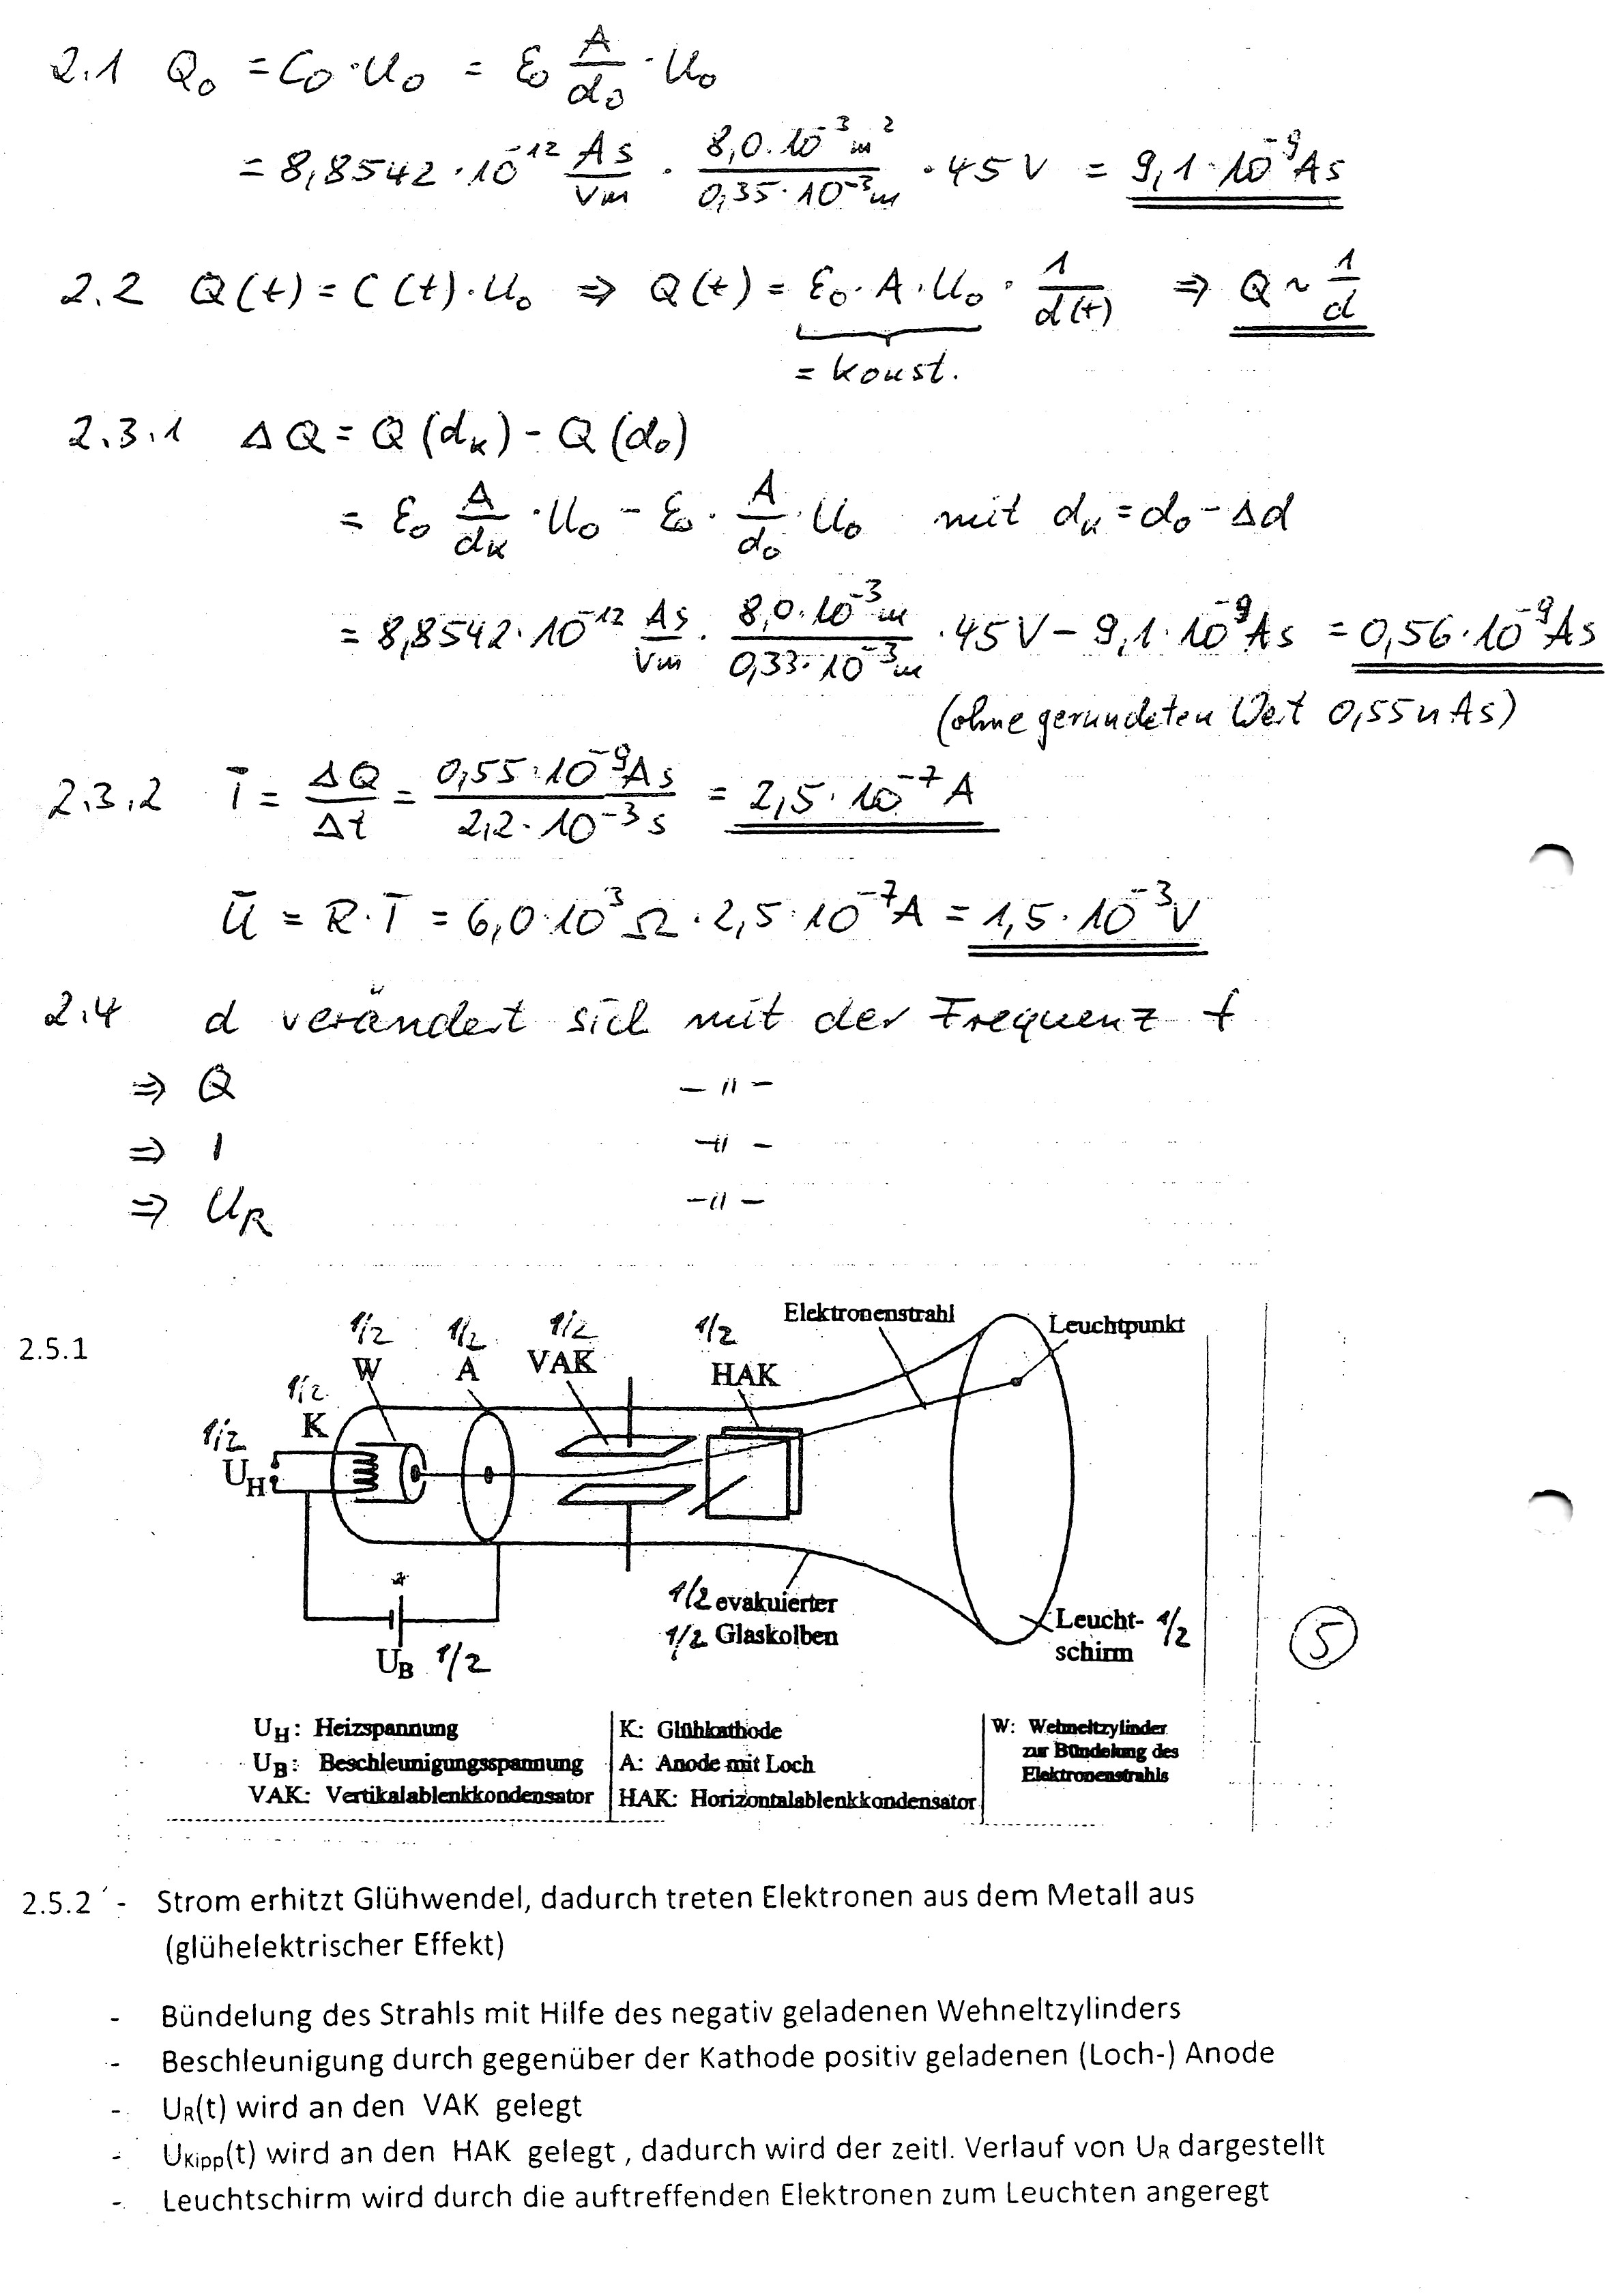 2.1 Q₀ = C₀ · U₀ = ε₀ A/d₀ · U₀
= 8,8542 · 10⁻¹² As/Vm · 8,0 · 10⁻³ m²/0,35 · 10⁻³ m · 45 V = 9,1 · 10⁻⁹ As
2.2 Q(t) = C(t) · U₀ ⇒ Q(t) = ε₀ · A · U₀ · 1/d(t) ⇒ Q ~ 1/d
= konst.
2.3.1 ΔQ = Q(dₖ) - Q(d₀)
= ε₀ A/dₖ · U₀ - ε₀ · A/d₀ · U₀ mit dₖ = d₀ - Δd
= 8,8542 · 10⁻¹² As/Vm · 8,0 · 10⁻³ m/0,33 · 10⁻³ m · 45 V - 9,1 · 10⁻⁹ As = 0,56 · 10⁻⁹ As
(ohne gerundeten Wert 0,55 nAs)
2.3.2 Ī = ΔQ/Δt = 0,55 · 10⁻⁹ As/2,2 · 10⁻³ s = 2,5 · 10⁻⁷ A
Ū = R · Ī = 6,0 · 10³ Ω · 2,5 · 10⁻⁷ A = 1,5 · 10⁻³ V
2.4 d verändert sich mit der Frequenz f
⇒ Q - " -
⇒ I - " -
⇒ U_R - " -
2.5.1
1/2 1/2 1/2 1/2 Elektronenstrahl
Leuchtpunkt
W A VAK HAK
1/2
K
1/2
U_H
1/2 evakuierter
1/2 Glaskolben
Leucht- 1/2
schirm
5
U_B 1/2
U_H: Heizspannung
U_B: Beschleunigungsspannung
VAK: Vertikalablenkkondensator
K: Glühkathode
A: Anode mit Loch
HAK: Horizontalablenkkondensator
W: Wehneltzylinder
zur Bündelung des
Elektronenstrahls
2.5.2 - Strom erhitzt Glühwendel, dadurch treten Elektronen aus dem Metall aus
(glühelektrischer Effekt)
- Bündelung des Strahls mit Hilfe des negativ geladenen Wehneltzylinders
- Beschleunigung durch gegenüber der Kathode positiv geladenen (Loch-) Anode
- U_R(t) wird an den VAK gelegt
- U_Kipp(t) wird an den HAK gelegt , dadurch wird der zeitl. Verlauf von U_R dargestellt
- Leuchtschirm wird durch die auftreffenden Elektronen zum Leuchten angeregt